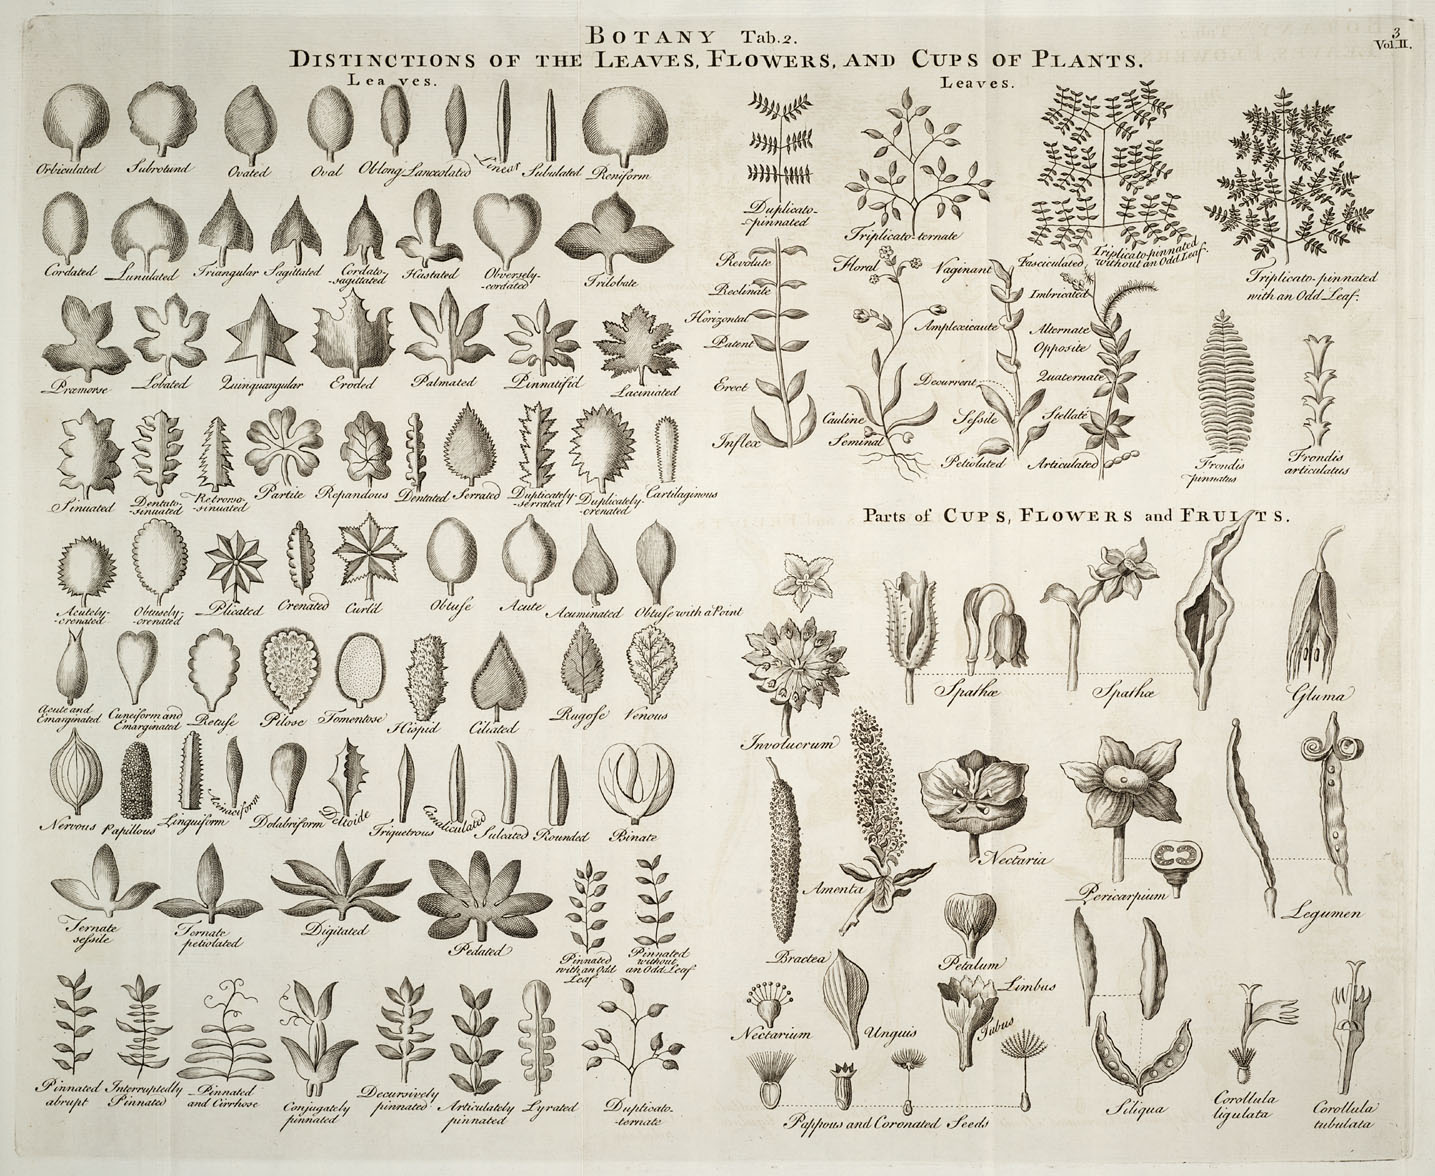 BOTANY Tab. 2.
3
Vol. II.
DISTINCTIONS OF THE LEAVES, FLOWERS, AND CUPS OF PLANTS.
Leaves.
Orbiculated
Subrotund
Ovated
Oval
Oblong
Lanceolated
Linear
Subulated
Reniform
Cordated
Lunulated
Triangular
Sagittated
Cordato-
sagittated
Hastated
Obversely-
cordated
Trilobate
Præmorse
Lobated
Quinquangular
Eroded
Palmated
Pinnatifid
Laciniated
Sinuated
Dentato-
sinuated
Retrorso-
sinuated
Partite
Repandous
Dentated
Serrated
Duplicately-
serrated
Duplicately-
crenated
Cartilaginous
Acutely-
crenated
Obtusely-
crenated
Plicated
Crenated
Curl'd
Obtuse
Acute
Acuminated
Obtuse with a Point
Acute and
Emarginated
Cuneiform and
Emarginated
Retuse
Pilose
Tomentose
Hispid
Ciliated
Rugose
Venous
Nervous
Papillous
Linguiform
Acinaciform
Dolabriform
Deltoide
Triquetrous
Canaliculated
Sulcated
Rounded
Binate
Ternate
sessile
Ternate
petiolated
Digitated
Pedated
Pinnated
with an Odd
Leaf
Pinnated
without
an Odd Leaf
Pinnated
abrupt
Interruptedly
Pinnated
Pinnated
and Cirrhose
Conjugately
pinnated
Decursively
pinnated
Articulately
pinnated
Lyrated
Duplicato-
ternate
Leaves.
Duplicato-
pinnated
Triplicato-ternate
Triplicato-pinnated
without an Odd Leaf.
Triplicato-pinnated
with an Odd Leaf.
Revolute
Reclinate
Horizontal
Patent
Erect
Inflex
Floral
Cauline
Seminal
Vaginant
Amplexicaule
Decurrent
Sessile
Petiolated
Fasciculated
Imbricated
Alternate
Opposite
Quaternate
Stellate
Articulated
Frondis
pinnatus
Frondis
articulatus
Parts of CUPS, FLOWERS and FRUITS.
Involucrum
Spathæ
Spathæ
Gluma
Amenta
Nectaria
Pericarpium
Legumen
Bractea
Petalum
Limbus
Tubus
Nectarium
Unguis
Pappous and Coronated Seeds
Siliqua
Corollula
ligulata
Corollula
tubulata